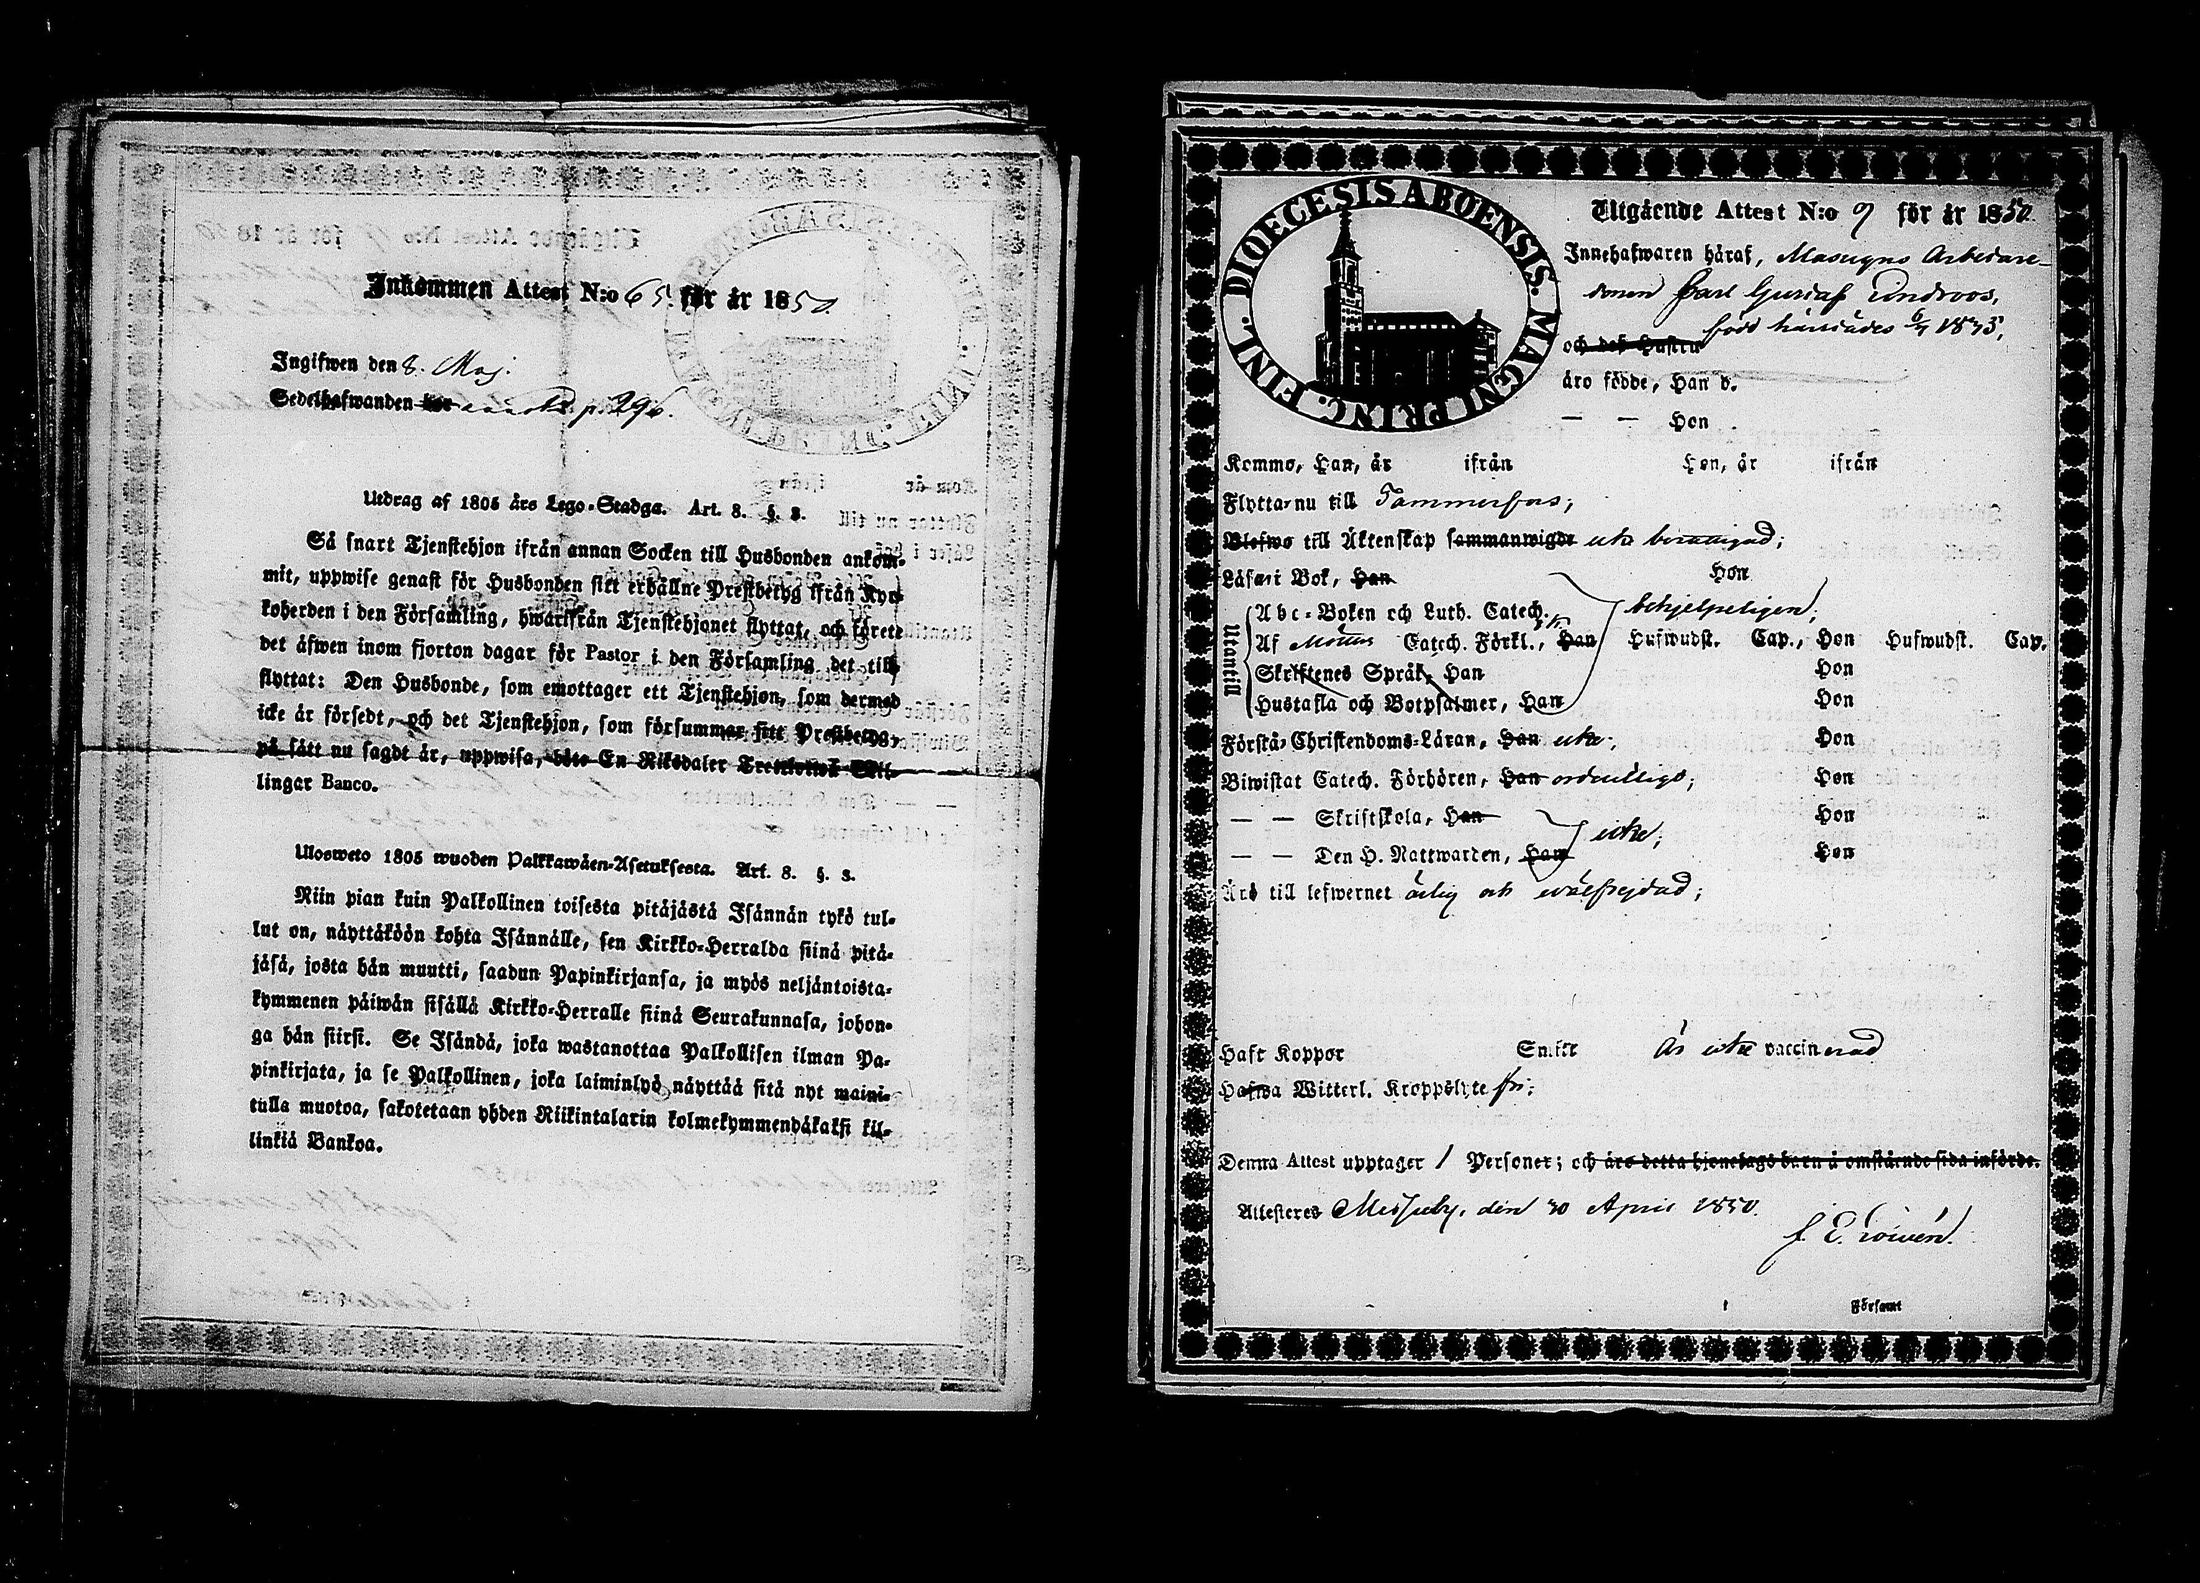 Inkommen Attest N:o 65. för år 1850.
Ingifwen den 8. Maj.
Sedelhafwanden p. 296.
Utdrag af 1805 års Lego-Stadga. Art. 8. §. 3.
Så snart Tjenstehjon ifrån annan Socken till Husbonden ankom-
mit, uppwise genast för Husbonden sitt erhållne Prestbetyg ifrån Kyr-
koherden i den Församling, hwarifrån Tjenstehjonet flyttat, och förete
det åfwen inom fjorton dagar för Pastor i den Församling det till-
flyttat: Den Husbonde, som emottager ett Tjenstehjon, som dermed
icke är försedt, och det Tjenstehjon, som försummar sitt Prestbetyg,
på sätt nu sagdt är, uppwisa, böte En Riksdaler Trettiotwå Skil-
lingar Banco.
Ulosweto 1805 wuoden Palkkawäen-Asetuksesta. Art. 8. §. 3.
Niin pian kuin Palkollinen toisesta pitäjästä Isännän tykö tul-
lut on, näyttäköön kohta Isännälle, sen Kirkko-Herralda siinä pitä-
jäsä, josta hän muutti, saadun Papinkirjansa, ja myös neljäntoista-
kymmenen päiwän sisällä Kirkko-Herralle siinä Seurakunnasa, johon-
ga hän siirsi. Se Isändä, joka wastanottaa Palkollisen ilman Pa-
pinkirjata, ja se Palkollinen, joka laiminlyö näyttää sitä nyt maini-
tulla muotoa, sakotetaan yhden Riikintalarin kolmekymmendäkaksi kil-
linkiä Bankoa.
DIOECESIS ABOENSIS. MAGNI PRINC. FINL.
Utgående Attest N:o 9 för år 1850.
Innehafwaren häraf, Masugns Arbetare-
sonen Carl Gustaf Lindroos,
född härstädes 6/7 1835,
och deß Hustru
äro födde, Han d.
— — Hon
Kommo, Han, år ifrån Hon, år ifrån
Flytta nu till Tammerfors;
Blefwo till Äktenskap sammanwigde icke berättigad;
Läsa i Bok, Han Hon
Utantill
Abc-Boken och Luth. Catech.
Af Catech. Förkl., Han Hufwudst. Cap., Hon Hufwudst. Cap.
behjelpeligen;
Skriftenes Språk, Han Hon
Hustafla och Botpsalmer, Han Hon
Förstå Christendoms-Läran, Han icke; Hon
Biwistat Catech. Förhören, Han ordentligt; Hon
— — Skriftskola, Han Hon
icke;
— — Den H. Nattwarden, Han Hon
Äro till lefwernet ärlig och wälfrejdad;
Haft Koppor Smitt Är icke vaccinerad
Hafwa Witterl. Kroppslyte fri;
Denna Attest upptager 1 Personer; och äro detta hjonelags barn å omstående sida införde.
Attesteras Messuby, den 30 April 1850.
Församl